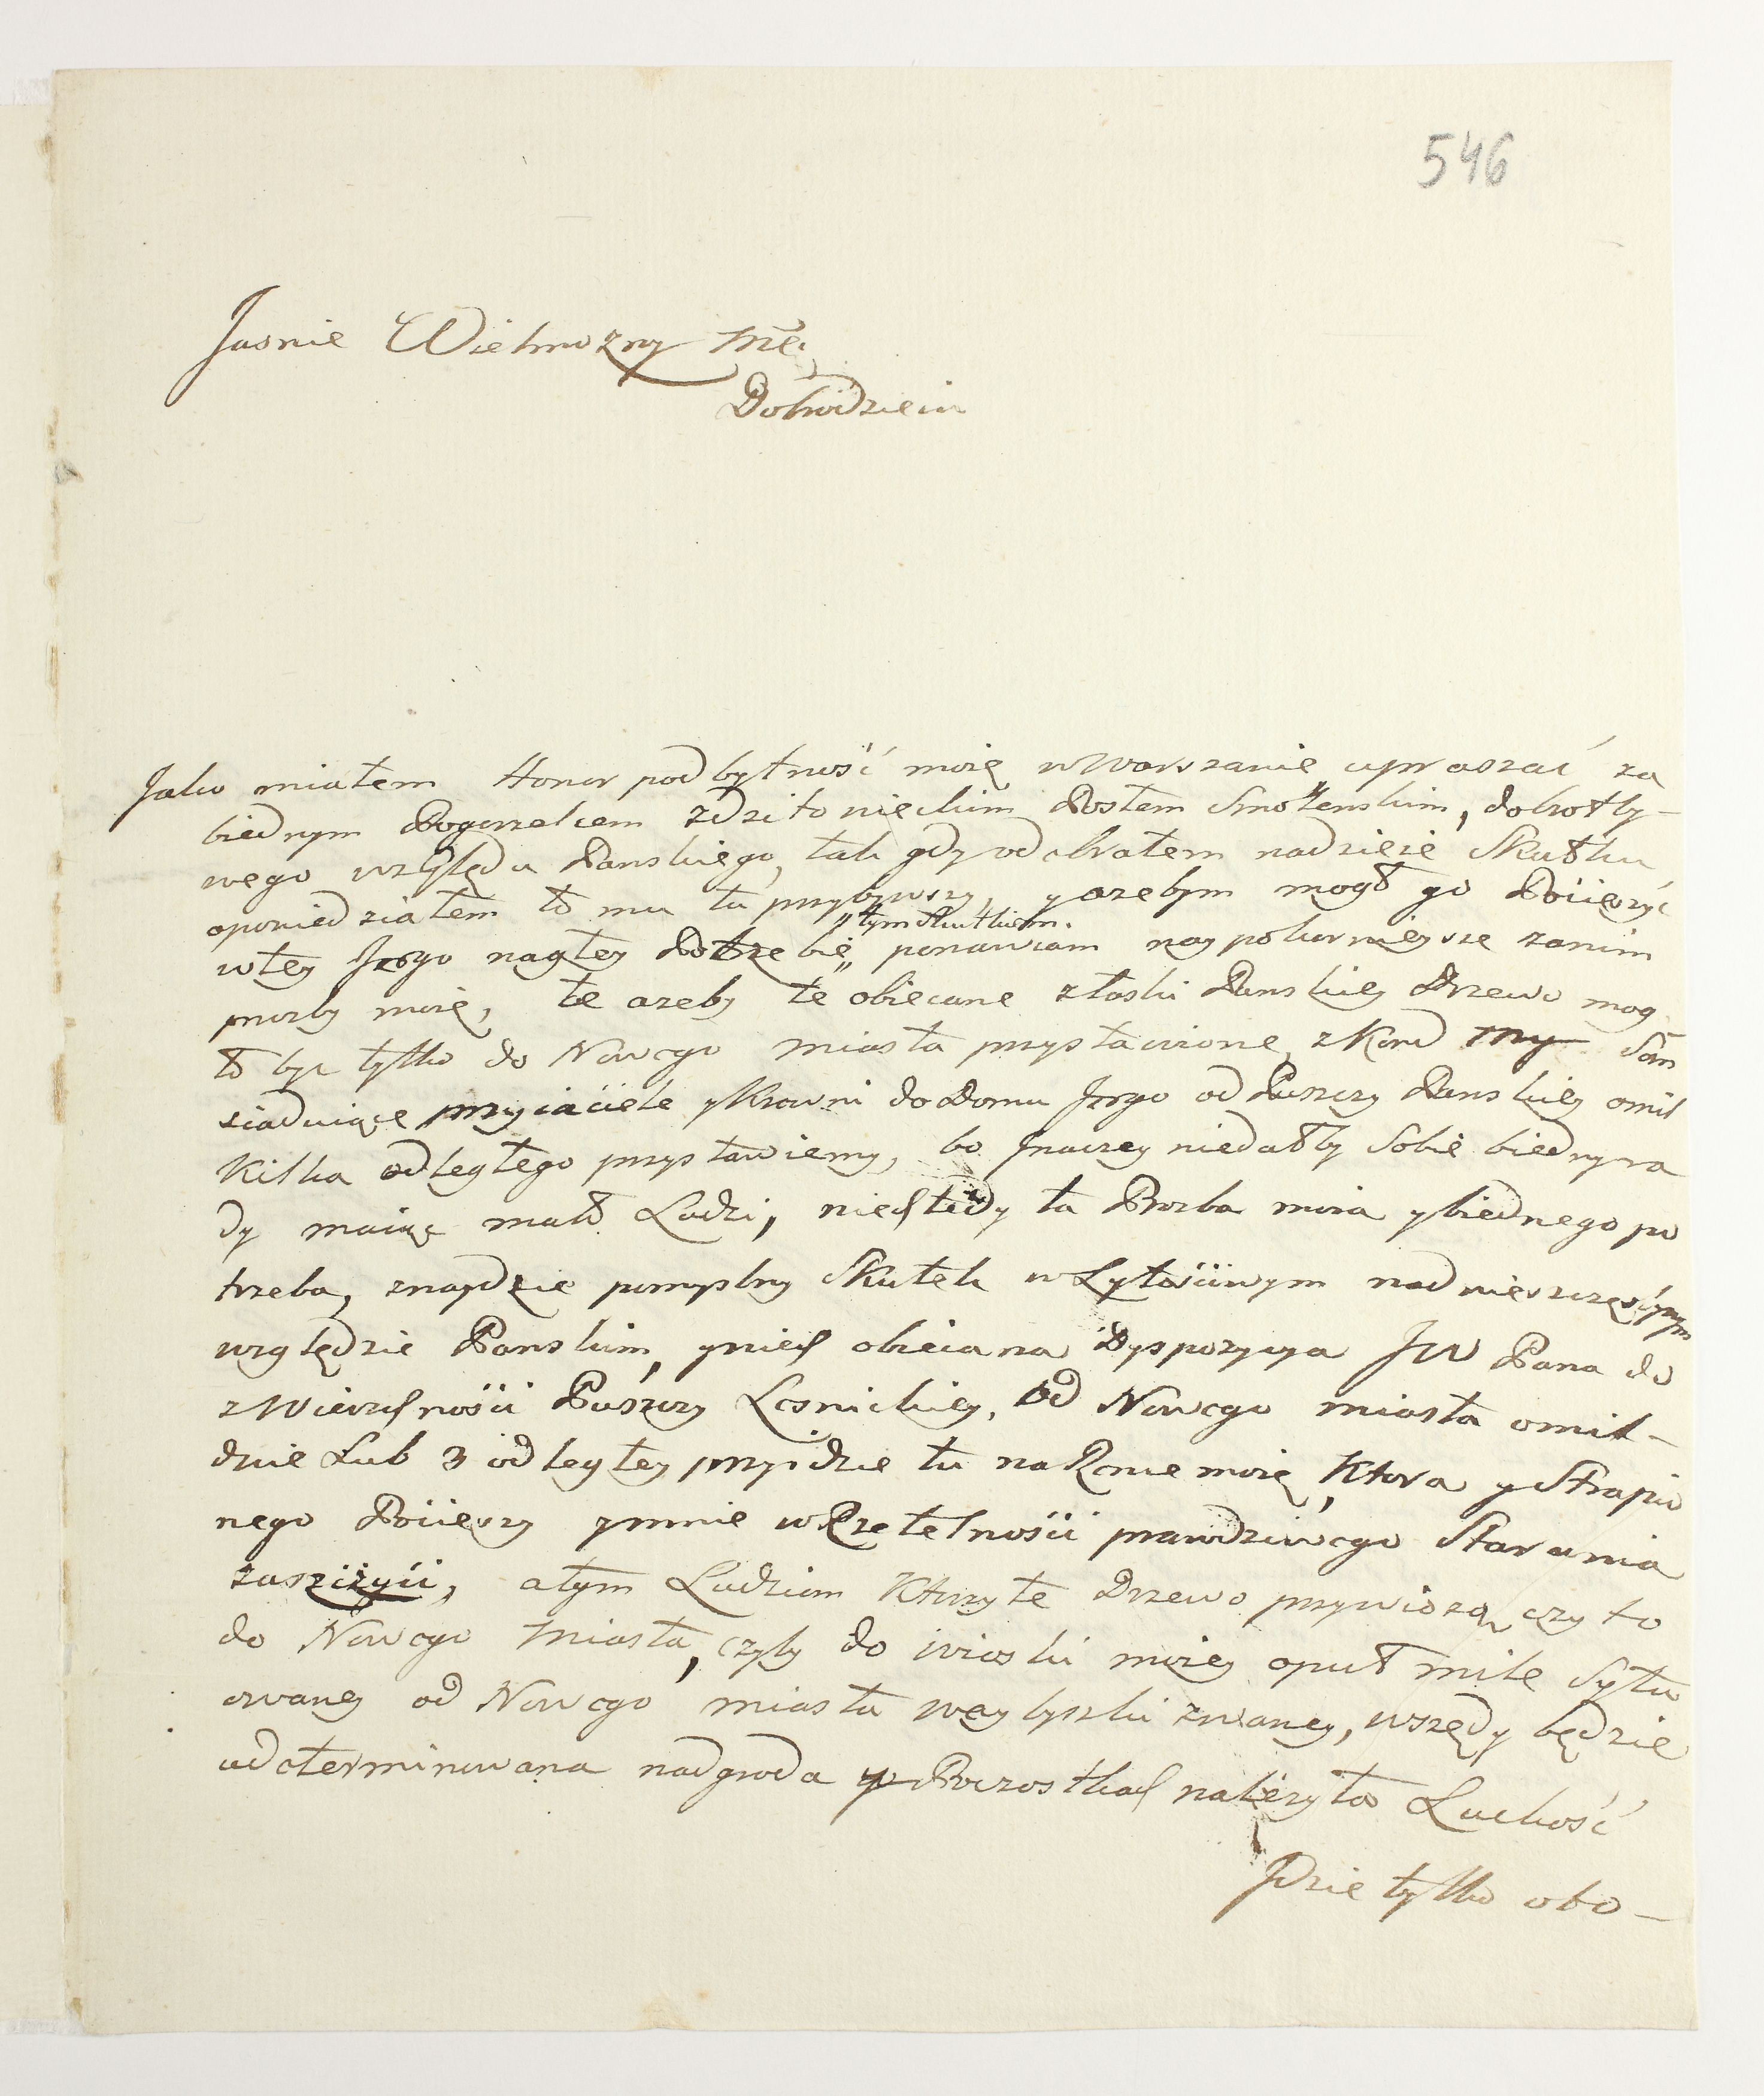 546
Jasnie Wielmozny Mci
Dobrodzieiu
Jako miałem Honor pod bytność moię w Warszawie upraszać za
biednym Pogorzelcem Zdzitowieckim Posłem Smoleńskim, dobrotly-
wego względu Panskiego, tak gdy odebrałem nadzieię Skutku
opowiedziałem to mu tu przybywszy, y azebym mogł go Pocieszyć
w tey Jego nagłey Potrzebie „tym skutkiem„ ponawiam naypokornieysze zanim
prozby moię, te azeby te obiecane z łaski Panskiey Drzewo mog
ło byc tylko do Nowego miasta przystawione, zkąd my Sąm
siaduiące przyiaciele y Krewni do Domu Jego od Puszczy Panskiey o mil
Kilka odległego przystawiemy, bo Jnaczey niedałby Sobie biedny ra
dy maiąc mało Ludzi, niech tedy ta Prozba moia y biednego po
trzeba, znaydzie pomyslny Skutek w Lytościwym nad nieszczęśćnym
względzie Panskim, y niech obiecana Dyspozycya JW Pana do
zwierzchności Puszczy Lesnickiey, od Nowego miasta o mil-
dwie Lub 3 odległey przyidzie tu na Rence moię, Ktora y Strapio
nego Pocieszy y mnie w Rzetelności prawdziwego Starania
zaszczyci, a tym Ludziom Ktorzy te Drzewo przywiozą, czy to
do Nowego Miasta, czyly do wioski moiey o puł mile Sytu
owaney od Nowego miasta zwaney, wszędy będzie
udeterminowana nadgroda y Poczostkach należyta Ludzkość
Jdzie tylko obo-